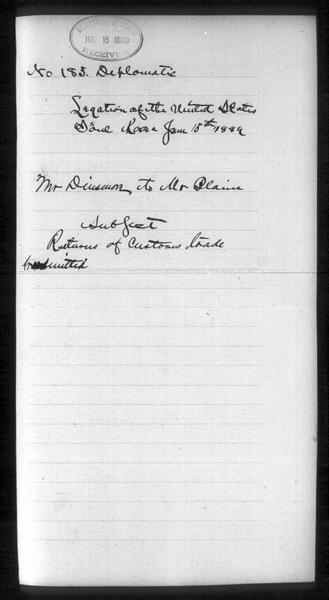 JUL 15 1889
RECEIVED
No 183. Diplomatic
Legation of the United States
Söul Korea June 15th 1889
Mr Dinsmore to Mr Blaine
Subject
Returns of Customs Trade
transmitted